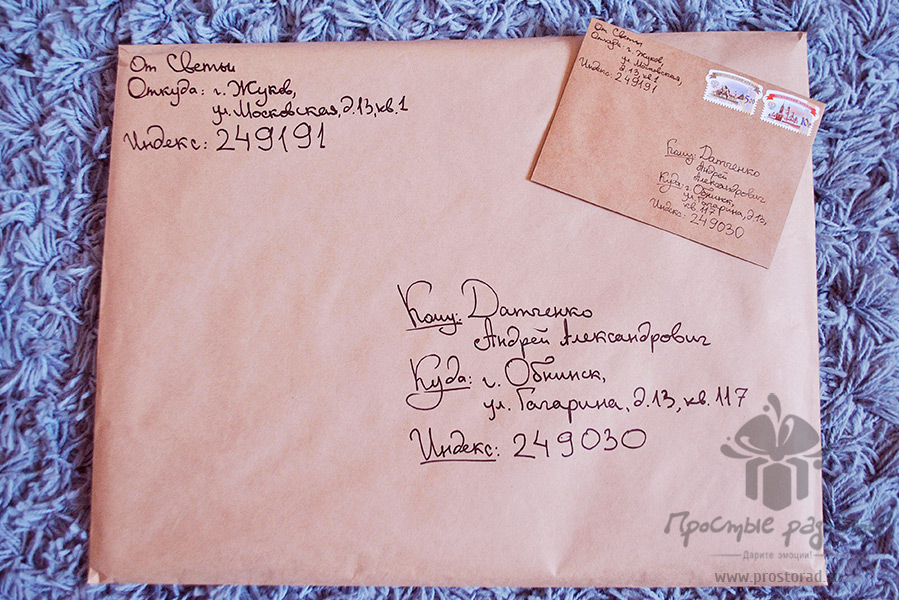 От Светы
Откуда: г. Жуков,
ул. Московская, д.13, кв.1
Индекс: 249191
Кому: Датченко
Андрей Александрович
Куда: г. Обнинск,
ул. Гагарина, д.13, кв. 117
Индекс: 249030
От Светы
Откуда: г. Жуков,
ул. Московская,
д.13, кв.1
Индекс: 249191
Кому: Датченко
Андрей
Александрович
Куда: г. Обнинск,
ул. Гагарина, д.13,
кв. 117
Индекс: 249030
Простые рад
Дарите эмоции!
www.prostorad.